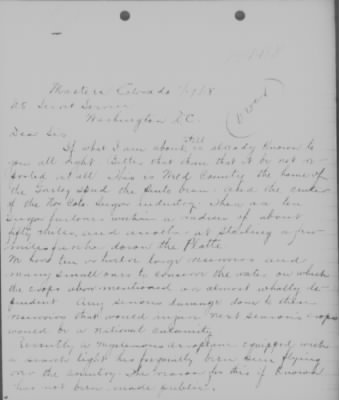 Masters Colorado 1/9/18
U.S. Secret Service
Washington D.C.
(over)
Dear Sir
If what I am about tell is already known to
you all right. Better that than that it be not re-
ported at all. This is Weld County the home of
the Early Spud the Pinto bean and the center
of the No Colo Sugar industry. There are ten
Sugar factories within a radius of about
fifty miles, and another at Sterling a few
miles farther down the Platte.
We have ten or twelve large reservoirs and
many small ones to conserve the water on which
the crops above mentioned are almost wholly de-
pendent. Any serious damage done to these
reservoirs that would injure next season's crops
would be a national calamity.
Recently a mysterious aeroplane equipped with
a search light has frequently been seen flying
over the country. The reason for this if known
has not been made public.